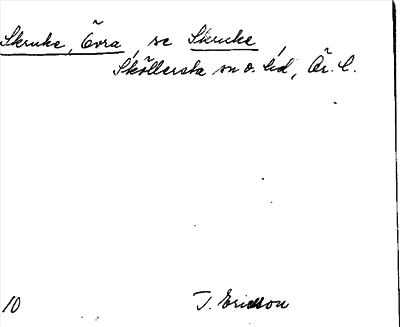 Skruke, Övra, se Skruke
Sköllersta sn o. hd, Ör. l.
10 T. Ericsson